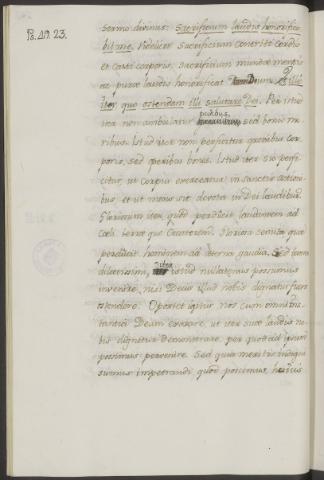 Ps. 49. 23.
sermo divinus: Sacrificium laudis honorifica-
bit me. Videlicet sacrificium contriti cordis
et casti corporis, sacrificium mundae mentis
ac purae laudis honorificat Deum. Et illic
iter quo ostendam illi salutare Dei. Per itine-
ra non ambulatur pedibus, sed bonis mo-
ribus. Istud iter non perficitur gressibus cor-
poris, sed operibus bonis. Istud iter sic perfi-
citur, ut corpus exerceatur in sanctis actioni-
bus et ut mens sit devota in Dei laudibus.
Gloriosum iter, quod perducit laudantem ad
Coeli terrae que Creatorem. Gloriosa semita quae
perducit hominem ad aeterna gaudia. Sed
dilectissimi, iter istud nullatenus possumus
invenire, nisi Deus illud nobis dignatus fuerit
ostendere. Oportet igitur, nos cum omnibus
Deum exorare, ut iter suae laudis no-
bis dignetur demonstrare, per quod ad ipsum
possimus pervenire. Sed quia meritis indigni
sumus impetrandi quod poscimus, huius